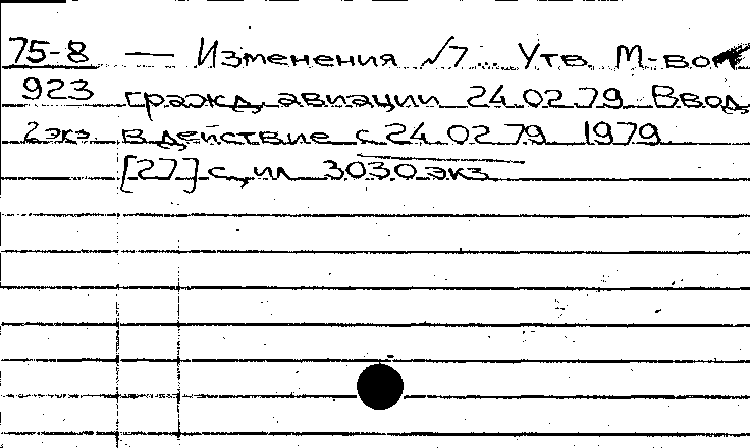 75-8 — Изменения №7... Утв. М-вом
923 гражд. авиации 24.02.79. Ввод.
2 экз. в действие с 24.02.79. 1979.
[27] с., ил. 3030 экз.